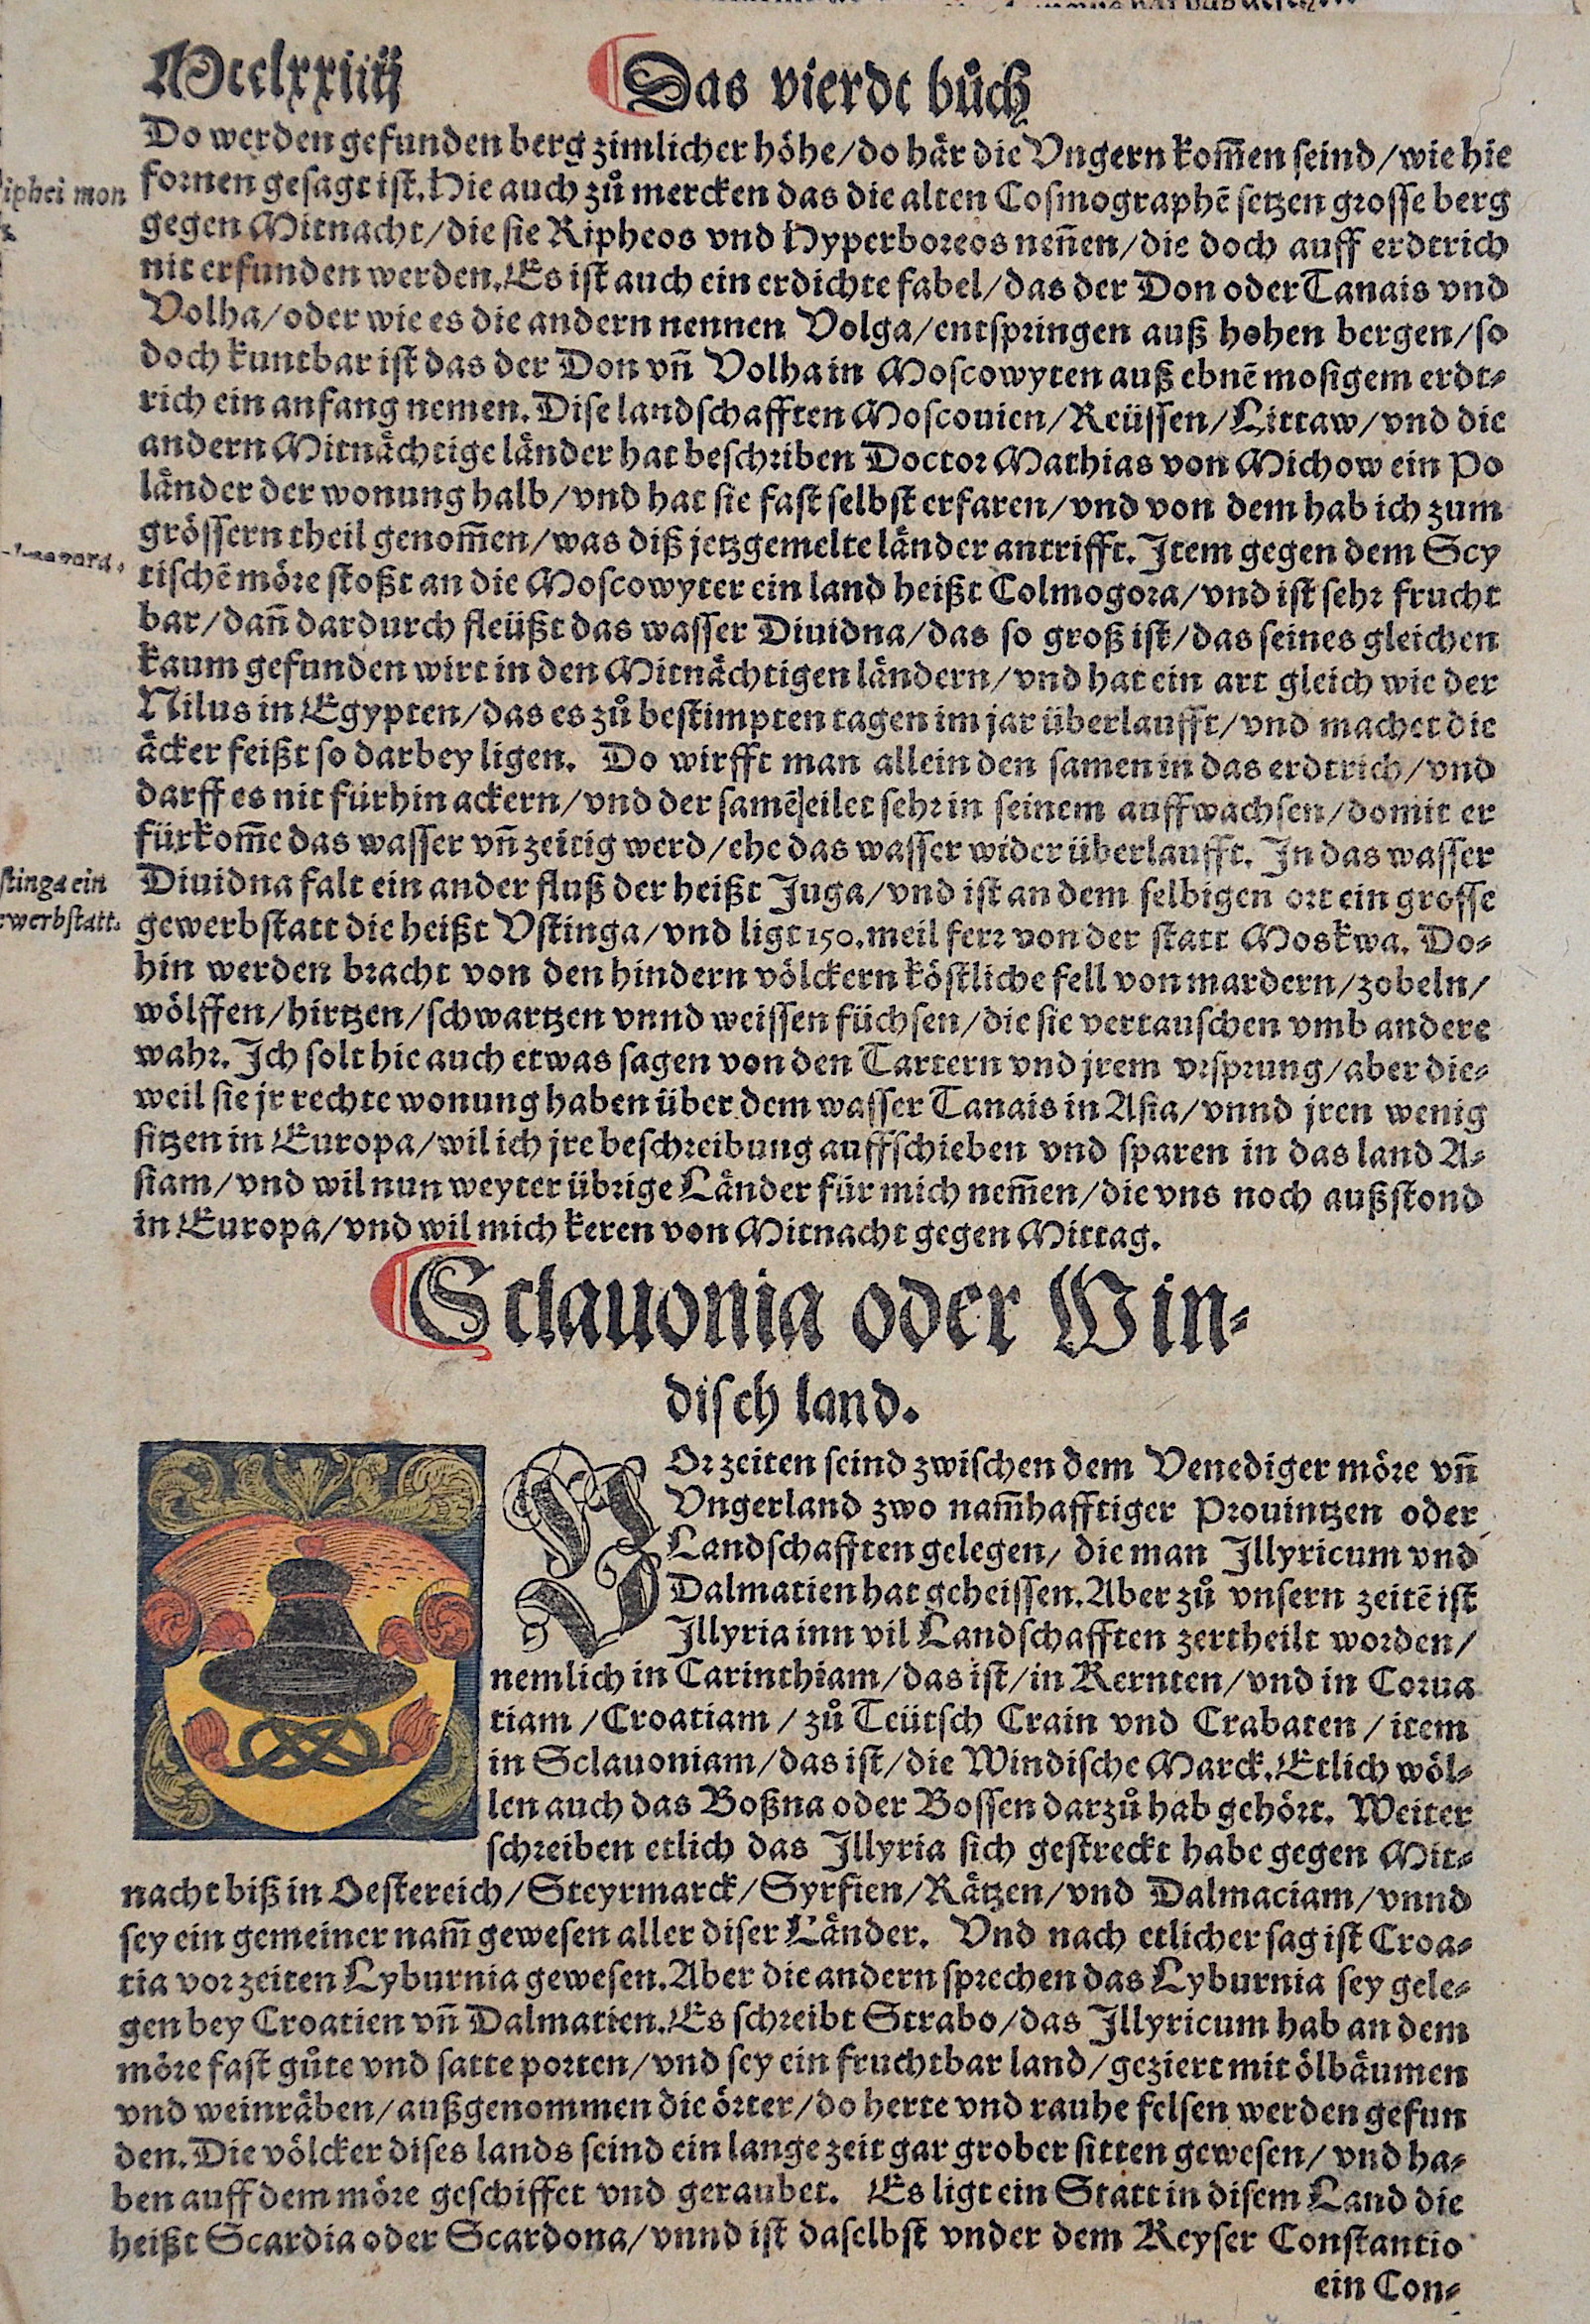 Mcclxxiiij
Das vierdt bůch
Do werden gefunden berg zimlicher höhe/do här die Vngern kom̃en seind/wie hie
fornen gesagt ist. Hie auch zů mercken das die alten Cosmographē setzen grosse berg
iphei mon
gegen Mitnacht/die sie Ripheos vnd Hyperboreos neñen/die doch auff erdtrich
nit erfunden werden. Es ist auch ein erdichte fabel/das der Don oder Tanais vnd
Volha/oder wie es die andern nennen Volga/entspringen auß hohen bergen/so
doch kuntbar ist das der Don vñ Volha in Moscowyten auß ebnē mosigem erdt⸗
rich ein anfang nemen. Dise landschafften Moscouien/Reüssen/Littaw/vnd die
andern Mitnächtige länder hat beschriben Doctor Mathias von Michow ein Po
länder der wonung halb/vnd hat sie fast selbst erfaren/vnd von dem hab ich zum
grössern theil genom̃en/was diß jetzgemelte länder antrifft. Item gegen dem Scy
tischē möre stoßt an die Moscowyter ein land heißt Colmogora/vnd ist sehr frucht
bar/dañ dardurch fleüßt das wasser Diuidna/das so groß ist/das seines gleichen
kaum gefunden wirt in den Mitnächtigen ländern/vnd hat ein art gleich wie der
Nilus in Egypten/das es zů bestimpten tagen im jar überlaufft/vnd machet die
äcker feißt so darbey ligen. Do wirfft man allein den samen in das erdtrich/vnd
darff es nit fürhin ackern/vnd der samē eilet sehr in seinem auffwachsen/domit er
fürkom̃e das wasser vñ zeitig werd/ehe das wasser wider überlaufft. In das wasser
stinga ein
Diuidna falt ein ander fluß der heißt Juga/vnd ist an dem selbigen ort ein grosse
ewerbstatt.
gewerbstatt die heißt Vstinga/vnd ligt 150. meil ferr von der statt Moskwa. Do⸗
hin werden bracht von den hindern völckern köstliche fell von mardern/zobeln/
wölffen/hirtzen/schwartzen vnnd weissen füchsen/die sie vertauschen vmb andere
wahr. Ich solt hie auch etwas sagen von den Tartern vnd jrem vrsprung/aber die⸗
weil sie jr rechte wonung haben über dem wasser Tanais in Asia/vnnd jren wenig
sitzen in Europa/wil ich jre beschreibung auffschieben vnd sparen in das land A⸗
siam/vnd wil nun weyter übrige Länder für mich nem̃en/die vns noch außstond
in Europa/vnd wil mich keren von Mitnacht gegen Mittag.
Sclauonia oder Win⸗
disch land.
VOr zeiten seind zwischen dem Venediger möre vñ
Vngerland zwo nam̃hafftiger Prouintzen oder
Landschafften gelegen/ die man Illyricum vnd
Dalmatien hat geheissen. Aber zů vnsern zeitē ist
Illyria inn vil Landschafften zertheilt worden/
nemlich in Carinthiam/das ist/in Kernten/vnd in Corua
tiam/Croatiam/zů Teütsch Crain vnd Crabaten/item
in Sclauoniam/das ist/die Windische Marck. Etlich wöl⸗
len auch das Boßna oder Bossen darzů hab gehört. Weiter
schreiben etlich das Illyria sich gestreckt habe gegen Mit⸗
nacht biß in Oestereich/Steyrmarck/Syrfien/Rätzen/vnd Dalmaciam/vnnd
sey ein gemeiner nam̃ gewesen aller diser Länder. Vnd nach etlicher sag ist Croa⸗
tia vor zeiten Lyburnia gewesen. Aber die andern sprechen das Lyburnia sey gele⸗
gen bey Croatien vñ Dalmatien. Es schreibt Strabo/das Illyricum hab an dem
möre fast gůte vnd satte porten/vnd sey ein fruchtbar land/geziert mit ölbäumen
vnd weinräben/außgenommen die örter/do herte vnd rauhe felsen werden gefun
den. Die völcker dises lands seind ein lange zeit gar grober sitten gewesen/vnd ha⸗
ben auff dem möre geschiffet vnd geraubet. Es ligt ein Statt in disem Land die
heißt Scardia oder Scardona/vnnd ist daselbst vnder dem Keyser Constantio
ein Con⸗